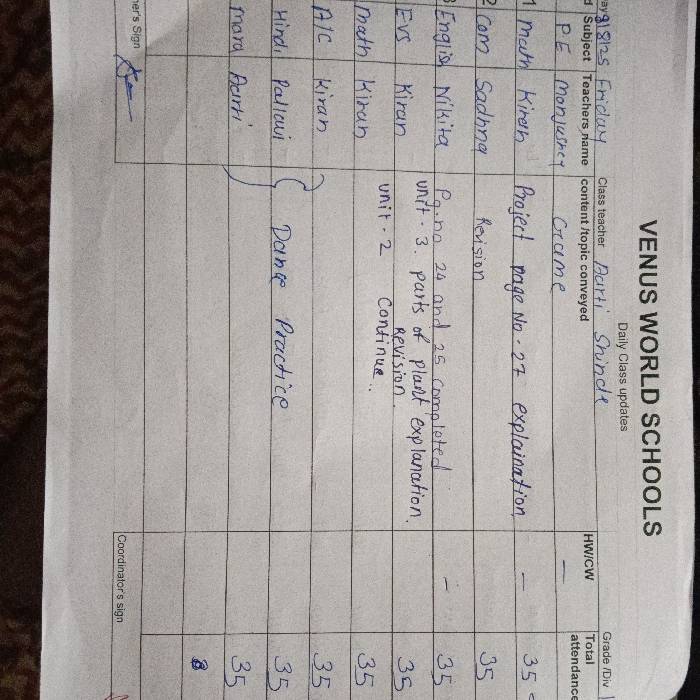 VENUS WORLD SCHOOLS
Daily Class updates
Friday Class teacher Aarti Shinde Grade /Div
Subject Teachers name content /topic conveyed HW/CW Total attendance
P.E Game —
1 Math Kiran Project page No - 27 explaination — 35
2 Com Sadhna Revision 35
3 English Nikita Pg.no 24 and 25 completed - 35
Evs Kiran unit - 3. parts of plant explanation. Revision 35
Math Kiran unit - 2 continue.. 35
A/C Kiran 35
Hindi Pallavi Dance Practice 35
Aarti 35
8
Coordinator's sign